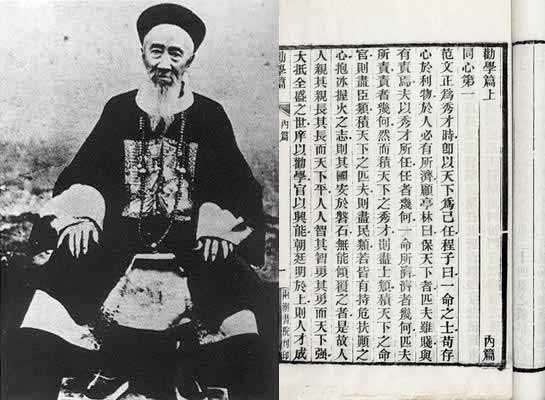 勸學篇上 內篇
同心第一
范文正爲秀才時卽以天下爲己任程子曰一命之士苟存
心於利物於人必有所濟顧亭林曰保天下者匹夫雖賤與
有責焉夫以秀才所任任者幾何一命所濟濟者幾何匹夫
所責責者幾何然而積天下之秀才則盡士類積天下之命
官則盡臣類積天下之匹夫則盡民類若皆有持危扶顚之
心抱冰握火之志則其國安於磐石無能傾覆之者是故人
人親其親長其長而天下平人人智其智勇其勇而天下强
大抵全盛之世庠以勸學官以興能朝廷明於上則人才成
勸學篇 內篇 一 兩湖書院刊印